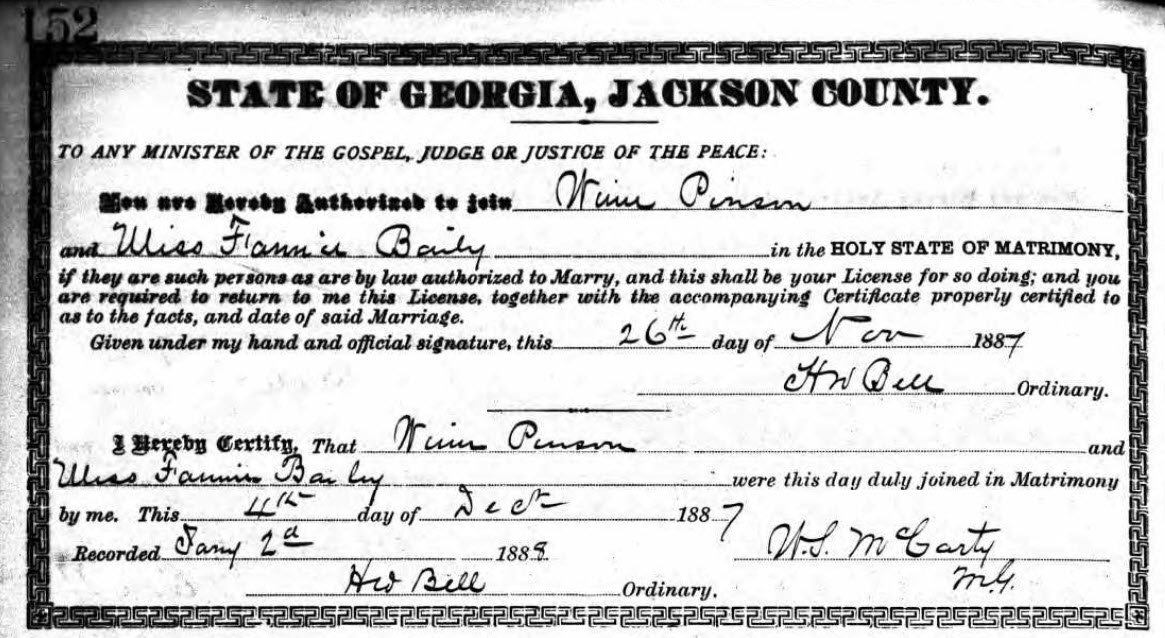 152
STATE OF GEORGIA, JACKSON COUNTY.
TO ANY MINISTER OF THE GOSPEL, JUDGE OR JUSTICE OF THE PEACE:
You are Hereby Authorized to join Winn Pinson
and Miss Fannie Baily in the HOLY STATE OF MATRIMONY,
if they are such persons as are by law authorized to Marry, and this shall be your License for so doing; and you
are required to return to me this License, together with the accompanying Certificate properly certified to
as to the facts, and date of said Marriage.
Given under my hand and official signature, this 26th day of Nov 1887
HW Bell Ordinary.
I Hereby Certify, That Winn Pinson and
Miss Fannie Baily were this day duly joined in Matrimony
by me. This 4th day of Dect 1887
Recorded Jany 2d 1888. W.S. McCarty
HW Bell Ordinary. M.G.